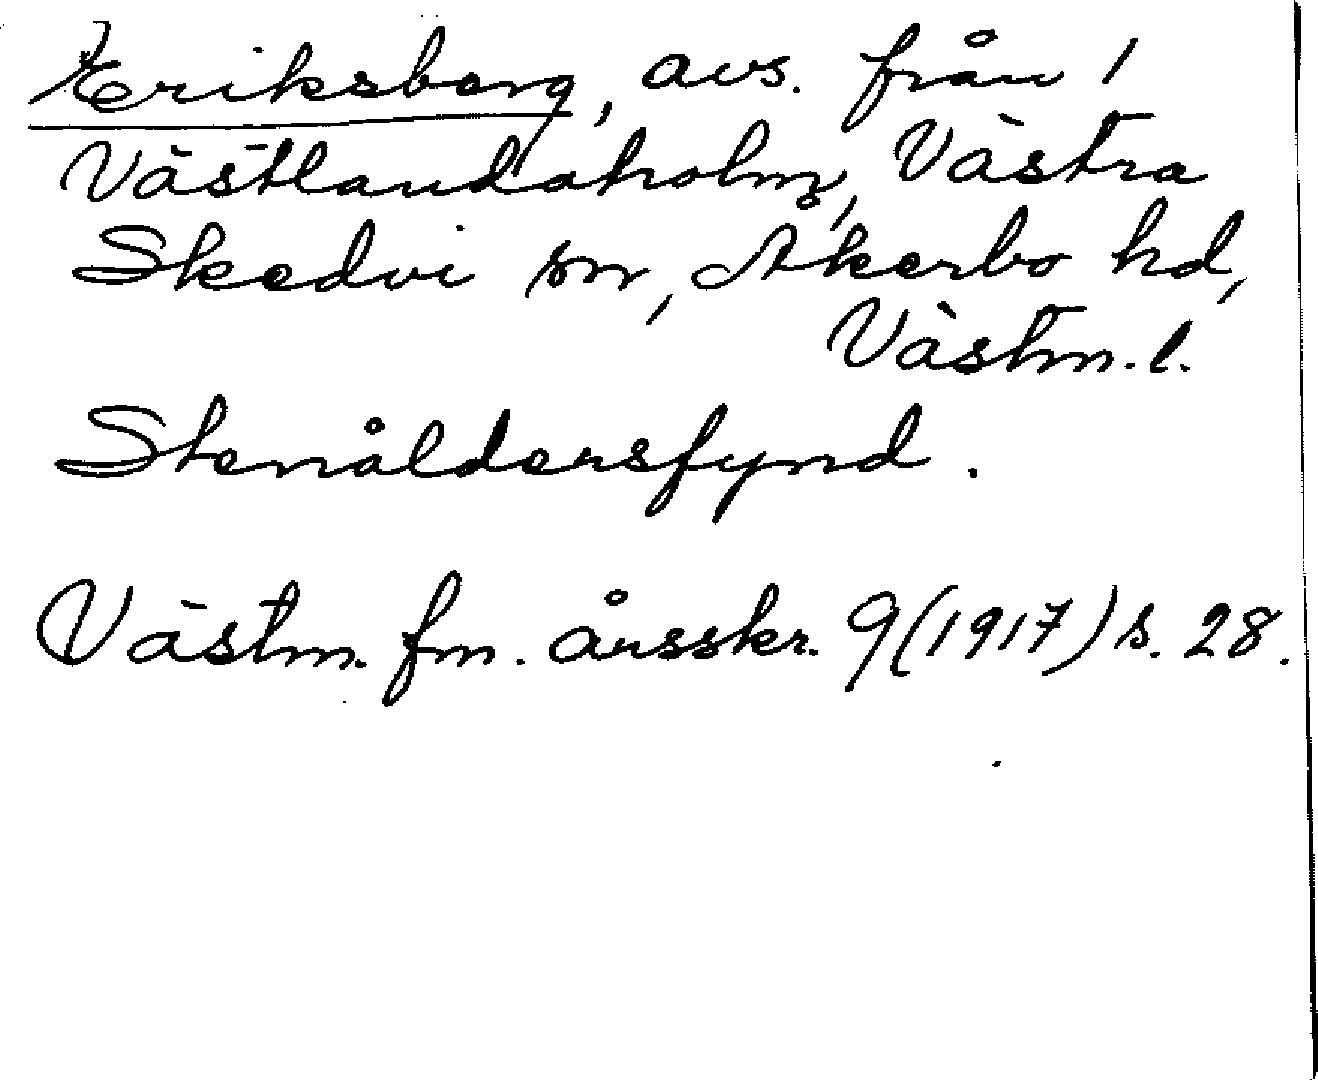 Eriksberg, avs. från /
Västlandaholm, Västra
Skedvi sn, Åkerbo hd,
Västm. l.
Stenåldersfynd.
Västm. fm. årsskr. 9 (1917) s. 28.